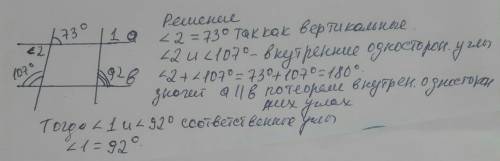 73° 1 a
∠2
107° 92 в
Решение
∠2 = 73° так как вертикальные.
∠2 и ∠107° - внутренние односторон. углы
∠2 + ∠107° = 73° + 107° = 180°
значит a || в по теореме внутрен. односторон
них углах
Тогда ∠1 и ∠92° соответственные углы
∠1 = 92°.